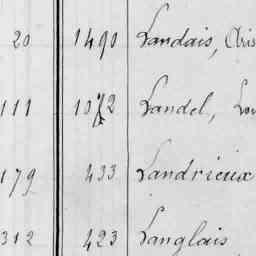 20 1490 Landais, Aris
111 1072 Landel, Lou
179 433 Landrieux
312 423 Langlais